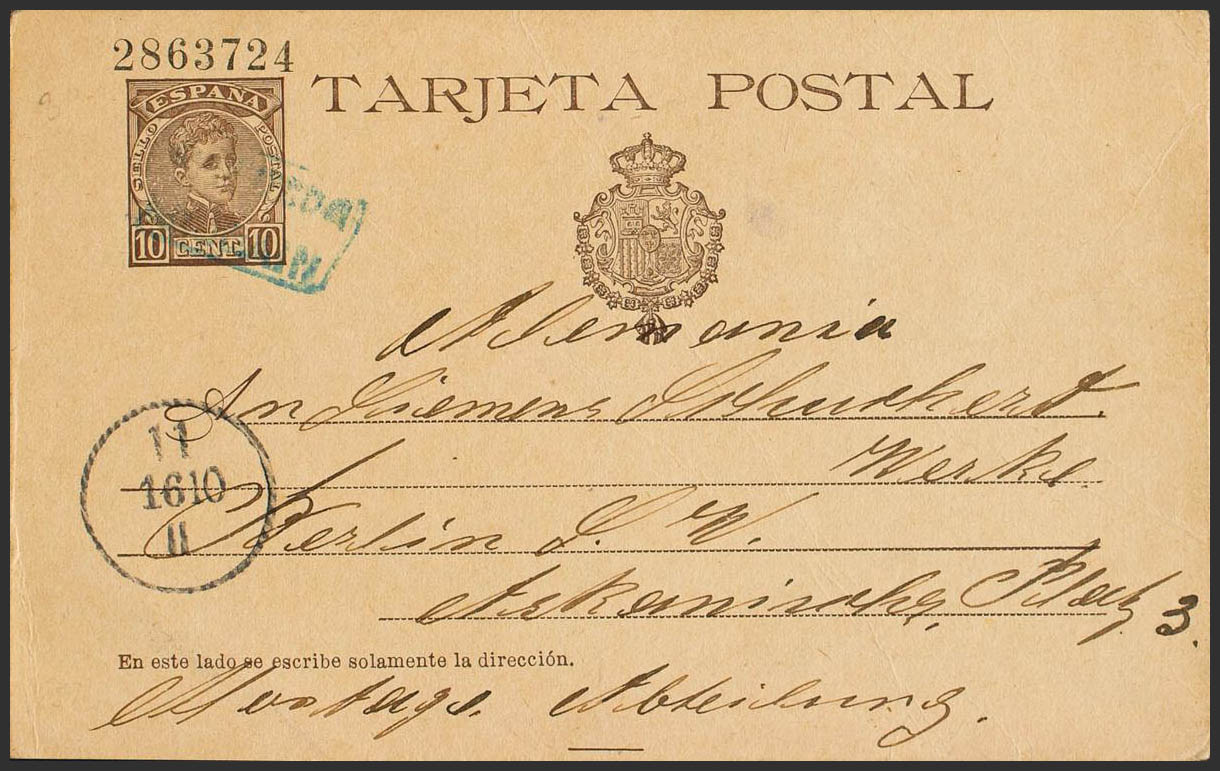 2863724
TARJETA POSTAL
ESPAÑA
SELLO POSTAL
10 CENT. 10
Alemania
An Siemens Schuckert.
Werke
Berlin S. W.
Askanischer Platz 3.
11
1610
11
En este lado se escribe solamente la dirección.
Montags. Abteilung.